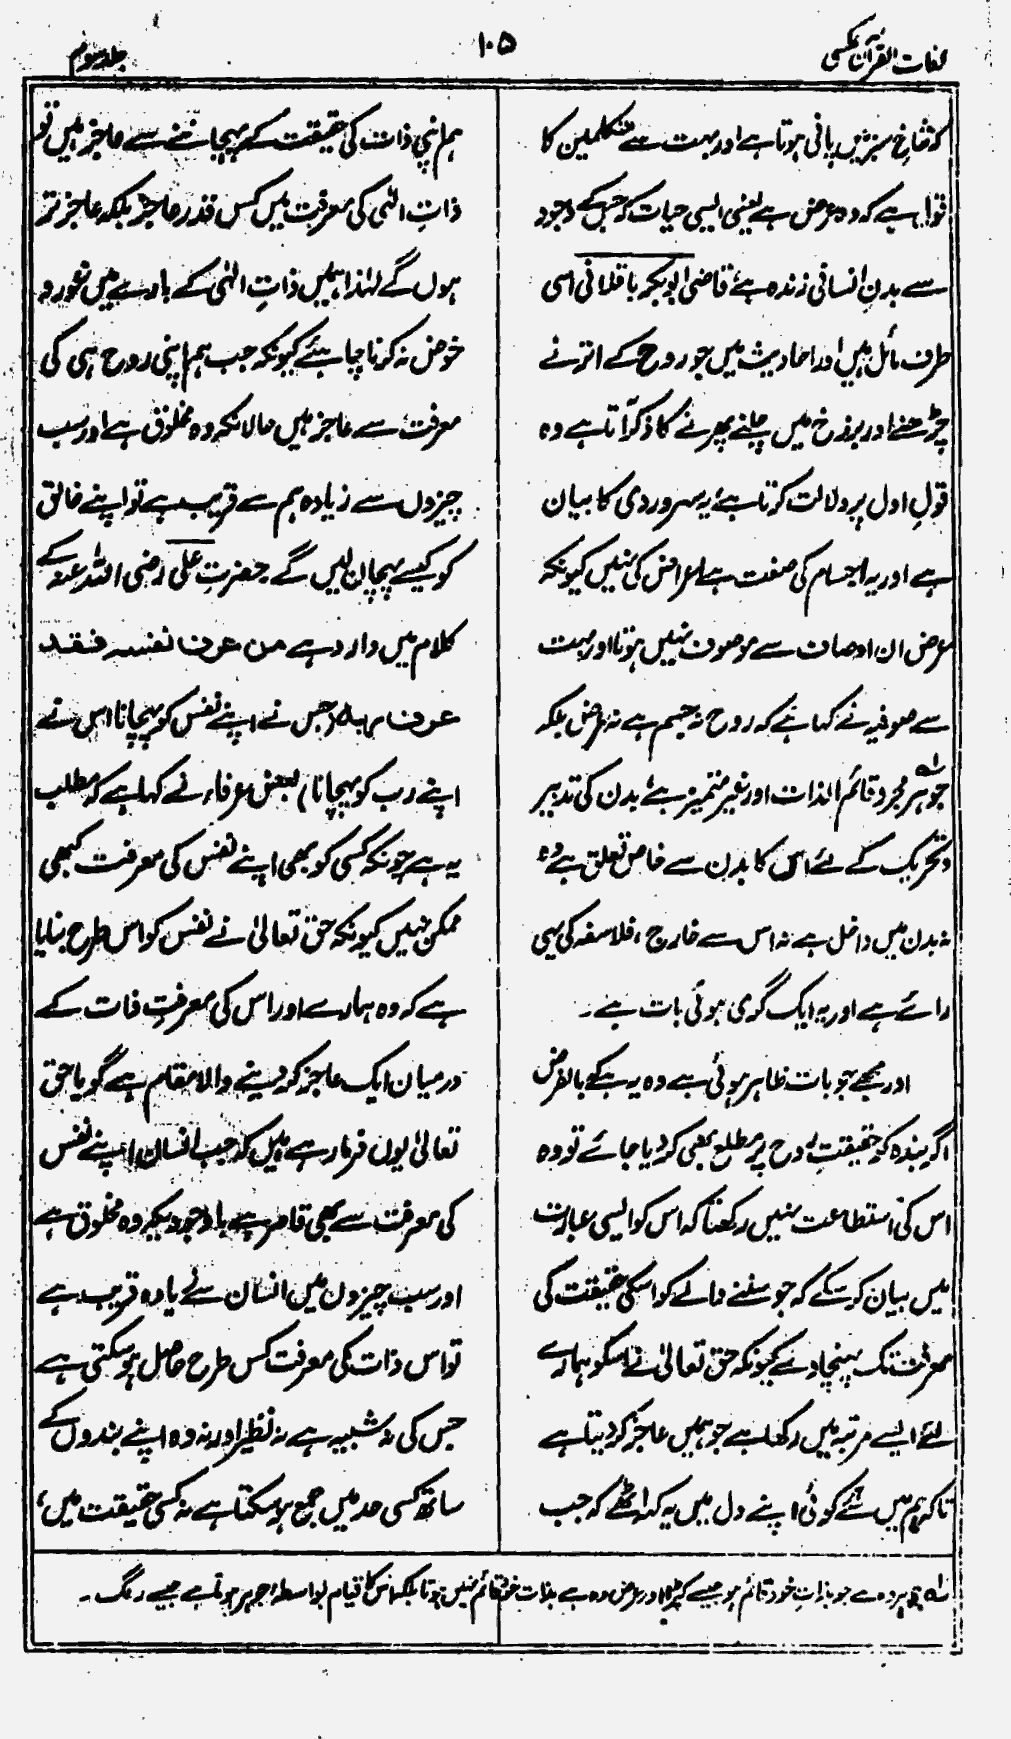 لغات القرآن عکسی
۱۰۵
جلد سوم
کہ شاخِ سبز میں پانی ہوتا ہے اور بہت سے متکلمین کا
قول ہے کہ وہ عرض ہے یعنی ایسی حیات کہ جس کے وجود
سے بدنِ انسانی زندہ ہے، قاضی ابوبکر باقلانی اسی
طرف مائل ہیں اور احادیث میں جو روح کے اترنے
چڑھنے اور برزخ میں چلنے پھرنے کا ذکر آتا ہے وہ
قولِ اول پر دلالت کرتا ہے، یہ سہروردی کا بیان
ہے اور یہ اجسام کی صفت ہے اعراض کی نہیں کیونکہ
عرض ان اوصاف سے موصوف نہیں ہوتا اور بہت
سے صوفیہ نے کہا ہے کہ روح نہ جسم ہے نہ عرض بلکہ
جوہر مجرد قائم الذات اور غیر متحیز ہے، بدن کی تدبیر
و تحریک کے لئے اس کا بدن سے خاص تعلق ہے وہ
نہ بدن میں داخل ہے نہ اس سے خارج، فلاسفہ کی یہی
رائے ہے اور یہ ایک گری ہوئی بات ہے۔
اور مجھے جو بات ظاہر ہوئی ہے وہ یہ ہے کہ بالفرض
اگر بندہ کو حقیقتِ روح پر مطلع بھی کر دیا جائے تو وہ
اس کی استطاعت نہیں رکھتا کہ اس کو ایسی عبارت
میں بیان کر سکے کہ جو سننے والے کو اسکی حقیقت کی
معرفت تک پہنچا دے کیونکہ حق تعالیٰ نے اسکو ہمارے
لئے ایسے مرتبہ میں رکھا ہے جو ہمیں عاجز کر دیتا ہے
تاکہ ہم میں سے کوئی اپنے دل میں یہ کہہ اٹھے کہ جب
ہم اپنی ذات کی حقیقت کے پہچاننے سے عاجز ہیں تو
ذاتِ الٰہی کی معرفت میں کس قدر عاجز بلکہ عاجز تر
ہوں گے لہٰذا ہمیں ذاتِ الٰہی کے بارے میں غور و
خوض نہ کرنا چاہئے کیونکہ جب ہم اپنی روح ہی کی
معرفت سے عاجز ہیں حالانکہ وہ مخلوق ہے اور سب
چیزوں سے زیادہ ہم سے قریب ہے تو اپنے خالق
کو کیسے پہچان لیں گے حضرت علی رضی اللہ عنہ کے
کلام میں وارد ہے من عرف نفسہ فقد
عرف ربہ (جس نے اپنے نفس کو پہچانا اس نے
اپنے رب کو پہچانا) بعض عرفاء نے کہا ہے کہ مطلب
یہ ہے چونکہ کسی کو بھی اپنے نفس کی معرفت کبھی
ممکن نہیں کیونکہ حق تعالیٰ نے نفس کو اس طرح بنایا
ہے کہ وہ ہمارے اور اس کی معرفتِ ذات کے
درمیان ایک عاجز کر دینے والا مقام ہے گویا حق
تعالیٰ یوں فرما رہے ہیں کہ جب انسان اپنے نفس
کی معرفت سے بھی قاصر ہے باوجودیکہ وہ مخلوق ہے
اور سب چیزوں میں انسان سے زیادہ قریب ہے
تو اس ذات کی معرفت کس طرح حاصل ہو سکتی ہے
جس کی نہ شبیہ ہے نہ نظیر اور نہ وہ اپنے بندوں کے
ساتھ کسی حد میں جمع ہو سکتا ہے نہ کسی حقیقت میں،
لہ جوہر وہ ہے جو بذاتِ خود قائم ہو جیسے کپڑا اور عرض وہ ہے بذات خود قائم نہیں ہوتا بلکہ اس کا قیام بواسطہ جوہر ہوتا ہے جیسے رنگ۔